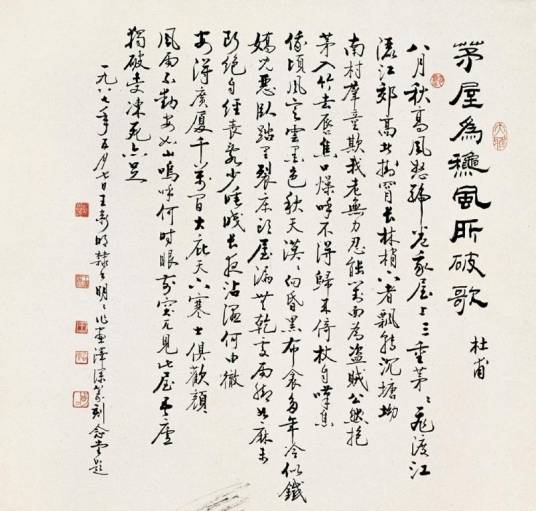 茅屋為穐風所破歌
杜甫
八月秋高風怒號卷我屋上三重茅〻飛渡江
灑江郊高者挂罥長林梢下者飄轉沉塘坳
南村羣童欺我老無力忍能對面為盜賊公然抱
茅入竹去唇焦口燥呼不得歸來倚杖自嘆
俄頃風定雲墨色秋天漠〻向昏黑布衾多年冷似鐵
嬌兒惡臥踏裏裂床頭屋漏無乾處雨腳如麻未
斷絕自經喪亂少睡眠長夜沾濕何由徹
安得廣厦千萬間大庇天下寒士俱歡顏
風雨不動安如山嗚呼何時眼前突兀見此屋吾廬
獨破受凍死亦足
一九八七年五月七日王明〻作畫澤深篆刻念堂題